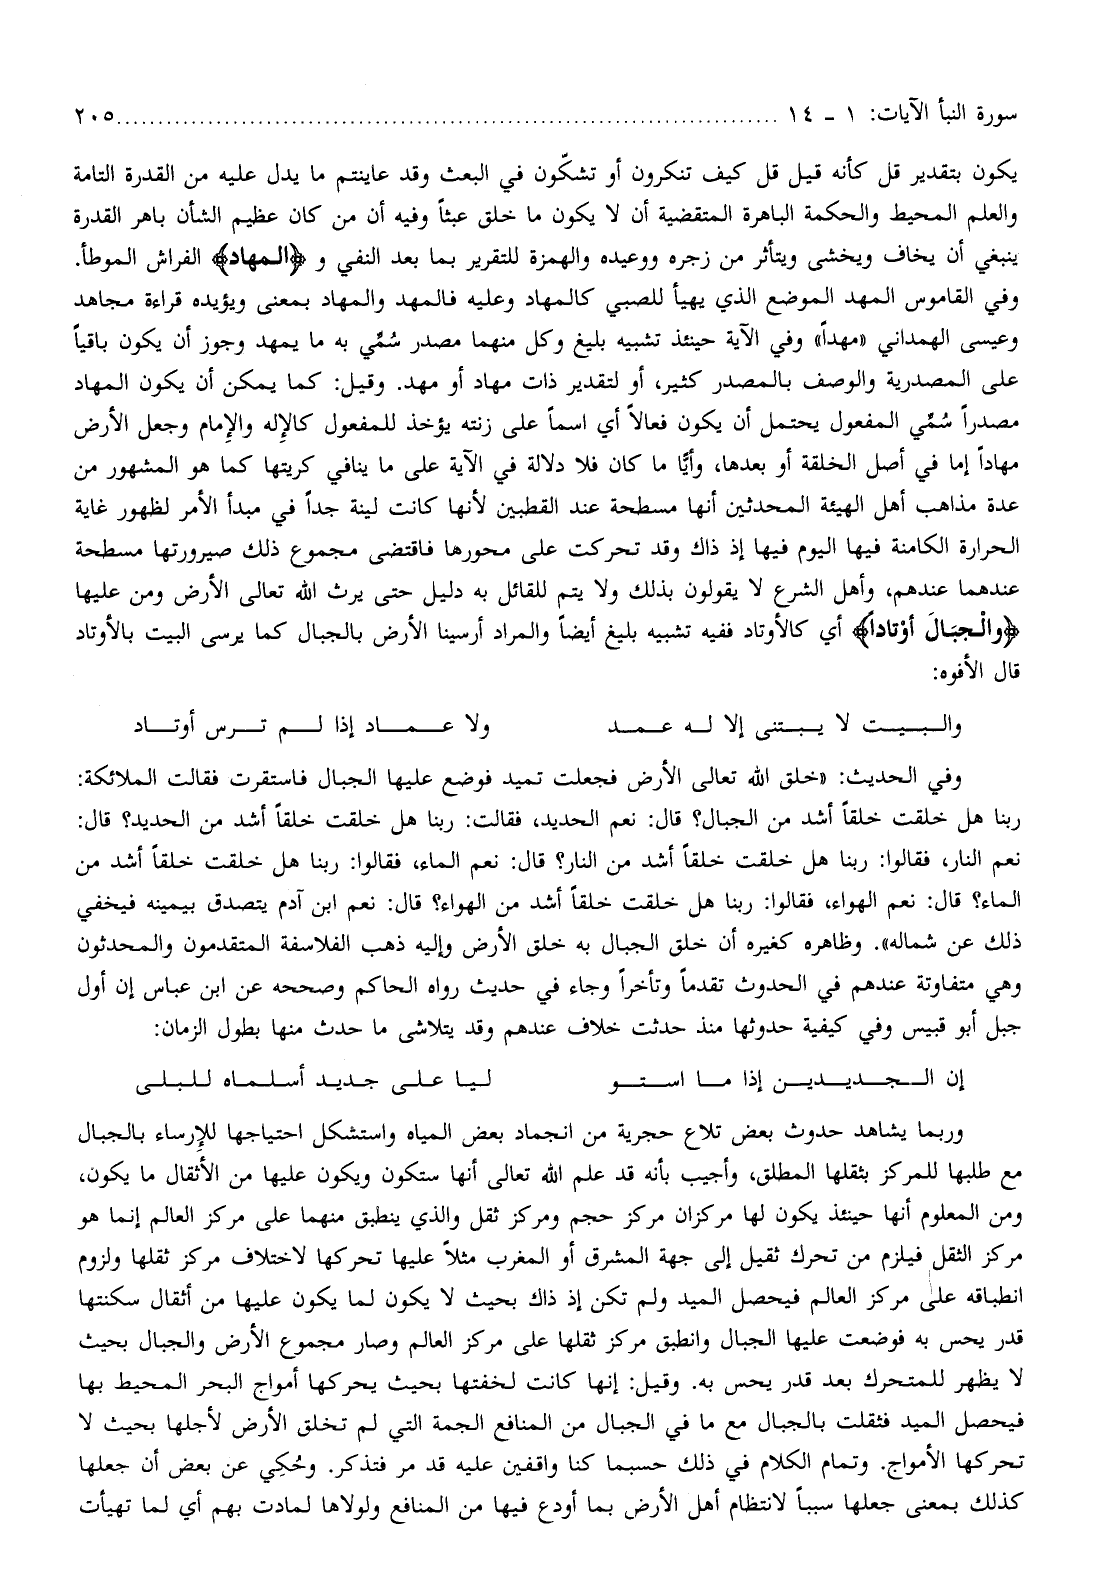 سورة النبأ الآيات: ١ - ١٤ ................................................................................ ٢٠٥
يكون بتقدير قل كأنه قيل قل كيف تنكرون أو تشكّون في البعث وقد عاينتم ما يدل عليه من القدرة التامة
والعلم المحيط والحكمة الباهرة المتقضية أن لا يكون ما خلق عبثاً وفيه أن من كان عظيم الشأن باهر القدرة
ينبغي أن يخاف ويخشى ويتأثر من زجره ووعيده والهمزة للتقرير بما بعد النفي و ﴿المهاد﴾ الفراش الموطأ.
وفي القاموس المهد الموضع الذي يهيأ للصبي كالمهاد وعليه فالمهد والمهاد بمعنى ويؤيده قراءة مجاهد
وعيسى الهمداني «مهداً» وفي الآية حينئذ تشبيه بليغ وكل منهما مصدر سُمِّي به ما يمهد وجوز أن يكون باقياً
على المصدرية والوصف بالمصدر كثير، أو لتقدير ذات مهاد أو مهد. وقيل: كما يمكن أن يكون المهاد
مصدراً سُمِّي المفعول يحتمل أن يكون فعالاً أي اسماً على زنته يؤخذ للمفعول كالإله والإمام وجعل الأرض
مهاداً إما في أصل الخلقة أو بعدها، وأيًّا ما كان فلا دلالة في الآية على ما ينافي كريتها كما هو المشهور من
عدة مذاهب أهل الهيئة المحدثين أنها مسطحة عند القطبين لأنها كانت لينة جداً في مبدأ الأمر لظهور غاية
الحرارة الكامنة فيها اليوم فيها إذ ذاك وقد تحركت على محورها فاقتضى مجموع ذلك صيرورتها مسطحة
عندهما عندهم، وأهل الشرع لا يقولون بذلك ولا يتم للقائل به دليل حتى يرث الله تعالى الأرض ومن عليها
﴿والْجبَالَ أوْتاداً﴾ أي كالأوتاد ففيه تشبيه بليغ أيضاً والمراد أرسينا الأرض بالجبال كما يرسى البيت بالأوتاد
قال الأفوه:
والبيت لا يبتنى إلا له عمد ولا عماد إذا لم ترس أوتاد
وفي الحديث: «خلق الله تعالى الأرض فجعلت تميد فوضع عليها الجبال فاستقرت فقالت الملائكة:
ربنا هل خلقت خلقاً أشد من الجبال؟ قال: نعم الحديد، فقالت: ربنا هل خلقت خلقاً أشد من الحديد؟ قال:
نعم النار، فقالوا: ربنا هل خلقت خلقاً أشد من النار؟ قال: نعم الماء، فقالوا: ربنا هل خلقت خلقاً أشد من
الماء؟ قال: نعم الهواء، فقالوا: ربنا هل خلقت خلقاً أشد من الهواء؟ قال: نعم ابن آدم يتصدق بيمينه فيخفي
ذلك عن شماله». وظاهره كغيره أن خلق الجبال به خلق الأرض وإليه ذهب الفلاسفة المتقدمون والمحدثون
وهي متفاوتة عندهم في الحدوث تقدماً وتأخراً وجاء في حديث رواه الحاكم وصححه عن ابن عباس إن أول
جبل أبو قبيس وفي كيفية حدوثها منذ حدثت خلاف عندهم وقد يتلاشى ما حدث منها بطول الزمان:
إن الجديدين إذا ما استو ليا على جديد أسلماه للبلى
وربما يشاهد حدوث بعض تلاع حجرية من انجماد بعض المياه واستشكل احتياجها للإرساء بالجبال
مع طلبها للمركز بثقلها المطلق، وأجيب بأنه قد علم الله تعالى أنها ستكون ويكون عليها من الأثقال ما يكون،
ومن المعلوم أنها حينئذ يكون لها مركزان مركز حجم ومركز ثقل والذي ينطبق منهما على مركز العالم إنما هو
مركز الثقل فيلزم من تحرك ثقيل إلى جهة المشرق أو المغرب مثلاً عليها تحركها لاختلاف مركز ثقلها ولزوم
انطباقه على مركز العالم فيحصل الميد ولم تكن إذ ذاك بحيث لا يكون لما يكون عليها من أثقال سكنتها
قدر يحس به فوضعت عليها الجبال وانطبق مركز ثقلها على مركز العالم وصار مجموع الأرض والجبال بحيث
لا يظهر للمتحرك بعد قدر يحس به. وقيل: إنها كانت لخفتها بحيث يحركها أمواج البحر المحيط بها
فيحصل الميد فثقلت بالجبال مع ما في الجبال من المنافع الجمة التي لم تخلق الأرض لأجلها بحيث لا
تحركها الأمواج. وتمام الكلام في ذلك حسبما كنا واقفين عليه قد مر فتذكر. وحُكِي عن بعض أن جعلها
كذلك بمعنى جعلها سبباً لانتظام أهل الأرض بما أودع فيها من المنافع ولولاها لمادت بهم أي لما تهيأت